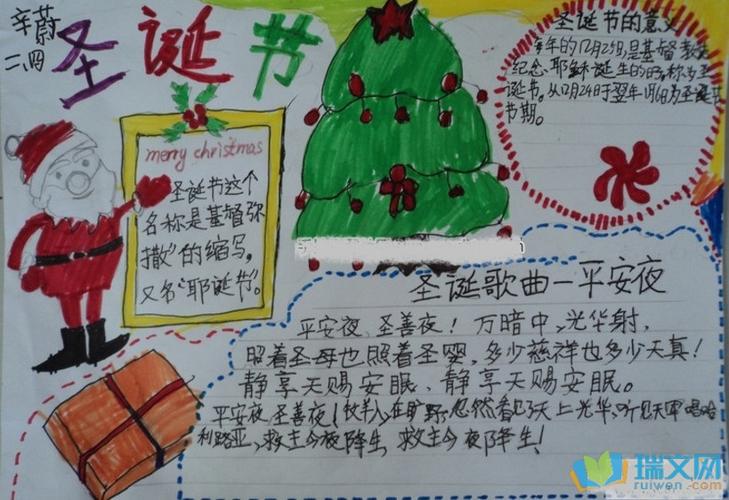 辛蔚
二、四
圣诞节
merry christmas
圣诞节这个
名称是基督弥
撒”的缩写,
又名“耶诞节”。
圣诞节的意义
每年的12月25日,是基督教徒
纪念耶稣诞生的日
诞节。从12月24日于翌年1月6日为圣诞节
节期。
圣诞歌曲一平安夜
平安夜、圣善夜!万暗中,光华射,
照着圣母也照着圣婴,多少慈祥也多少天真!
静享天赐安眠、静享天赐安眠。
平安夜,圣善夜!牧羊人,在旷野,忽然看见了天上光华,听见天军唱哈
利路亚,救主今夜降生,救主今夜降生!
瑞文网
ruiwen.com